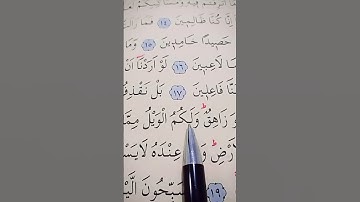 اِنَّا كُنَّا ظَالِمٖينَ ١٤ فَمَا زَالَتْ
حَصٖيدًا خَامِدٖينَ ١٥ وَمَا
لَاعِبٖينَ ١٦ لَوْ اَرَدْنَٓا
نَّا فَاعِلٖينَ ١٧ بَلْ نَقْذِفُ
وَ زَاهِقٌ وَلَكُمُ الْوَيْلُ مِمَّا
لْاَرْضِ عِنْدَهُ لَا يَسْ
يُسَبِّحُونَ الَّيْ
١٩